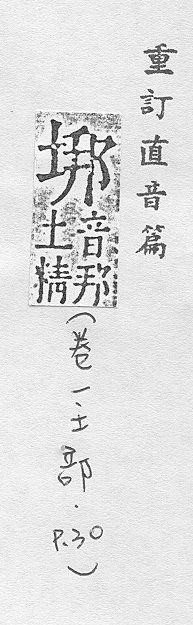 重訂直音篇
垹
音邦
土精
(卷一·土部·P.30)